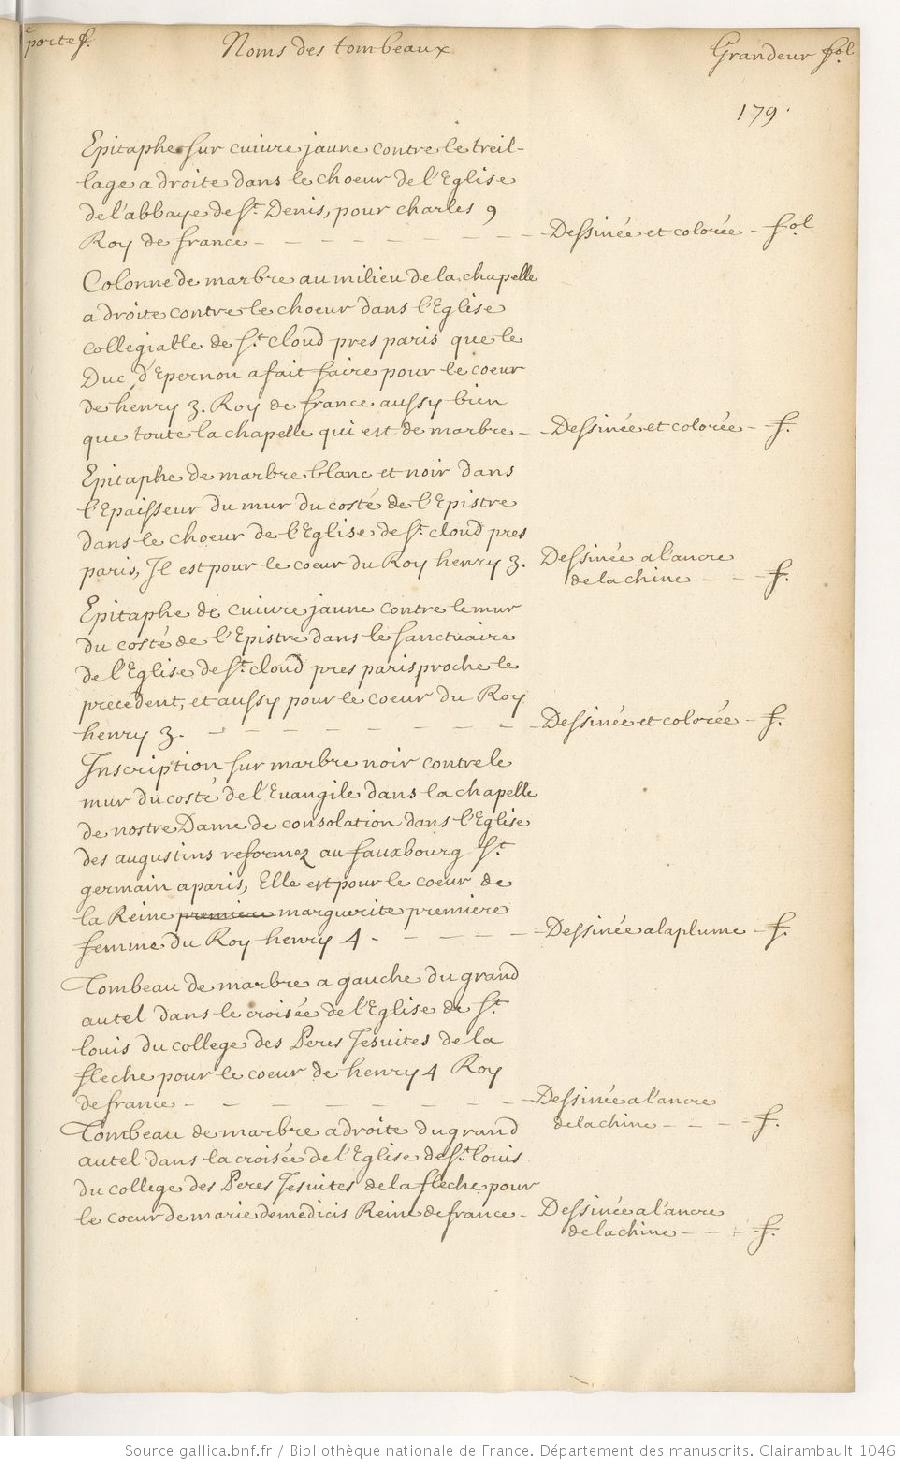 portef. Noms des tombeaux Grandeur fol
179.
Epitaphe sur cuivre jaune contre le treil-
lage a droite dans le choeur de l'Eglise
de l'abbaye de St. Denis, pour charles 9
Roy de france - - - - - - - - - Dessinée et colorée - fol
Colonne de marbre au milieu de la chapelle
a droite contre le choeur dans l'Eglise
collegialle de St. cloud pres paris que le
Duc d'Epernon a fait faire pour le coeur
de henry 3. Roy de france. aussy bien
que toute la chapelle qui est de marbre - - Dessinée et colorée - f.
Epitaphe de marbre blanc et noir dans
l'Epaisseur du mur du costé de l'Epistre
dans le choeur de l'Eglise de St. cloud pres
paris, Il est pour le coeur du Roy henry 3. Dessinée a l'ancre
de la chine - - f.
Epitaphe de cuivre jaune contre le mur
du costé de l'Epistre dans le sanctuaire
de l'Eglise de St. cloud pres paris proche le
precedent, et aussy pour le coeur du Roy
henry 3. - - - - - - - - - - Dessinée et colorée - f.
Inscription sur marbre noir contre le
mur du costé de l'Euangile dans la chapelle
de nostre Dame de consolation dans l'Eglise
des augustins reformez au fauxbourg St.
germain a paris, Elle est pour le coeur de
la Reine premiere marguerite premiere
femme du Roy henry 4. - - - - - Dessinée a la plume - f.
Tombeau de marbre a gauche du grand
autel dans le croisée de l'Eglise de St.
louis du college des Peres Jesuites de la
fleche pour le coeur de henry 4 Roy
de france - - - - - - - - - Dessinée a l'ancre
de la chine - - - - f.
Tombeau de marbre a droite du grand
autel dans la croisée de l'Eglise de St. louis
du college des Peres Jesuites de la fleche pour
le coeur de marie de medicis Reine de france - Dessinée a l'ancre
de la chine - - - f.
Source gallica.bnf.fr / Bibliothèque nationale de France. Département des manuscrits. Clairambault 1046